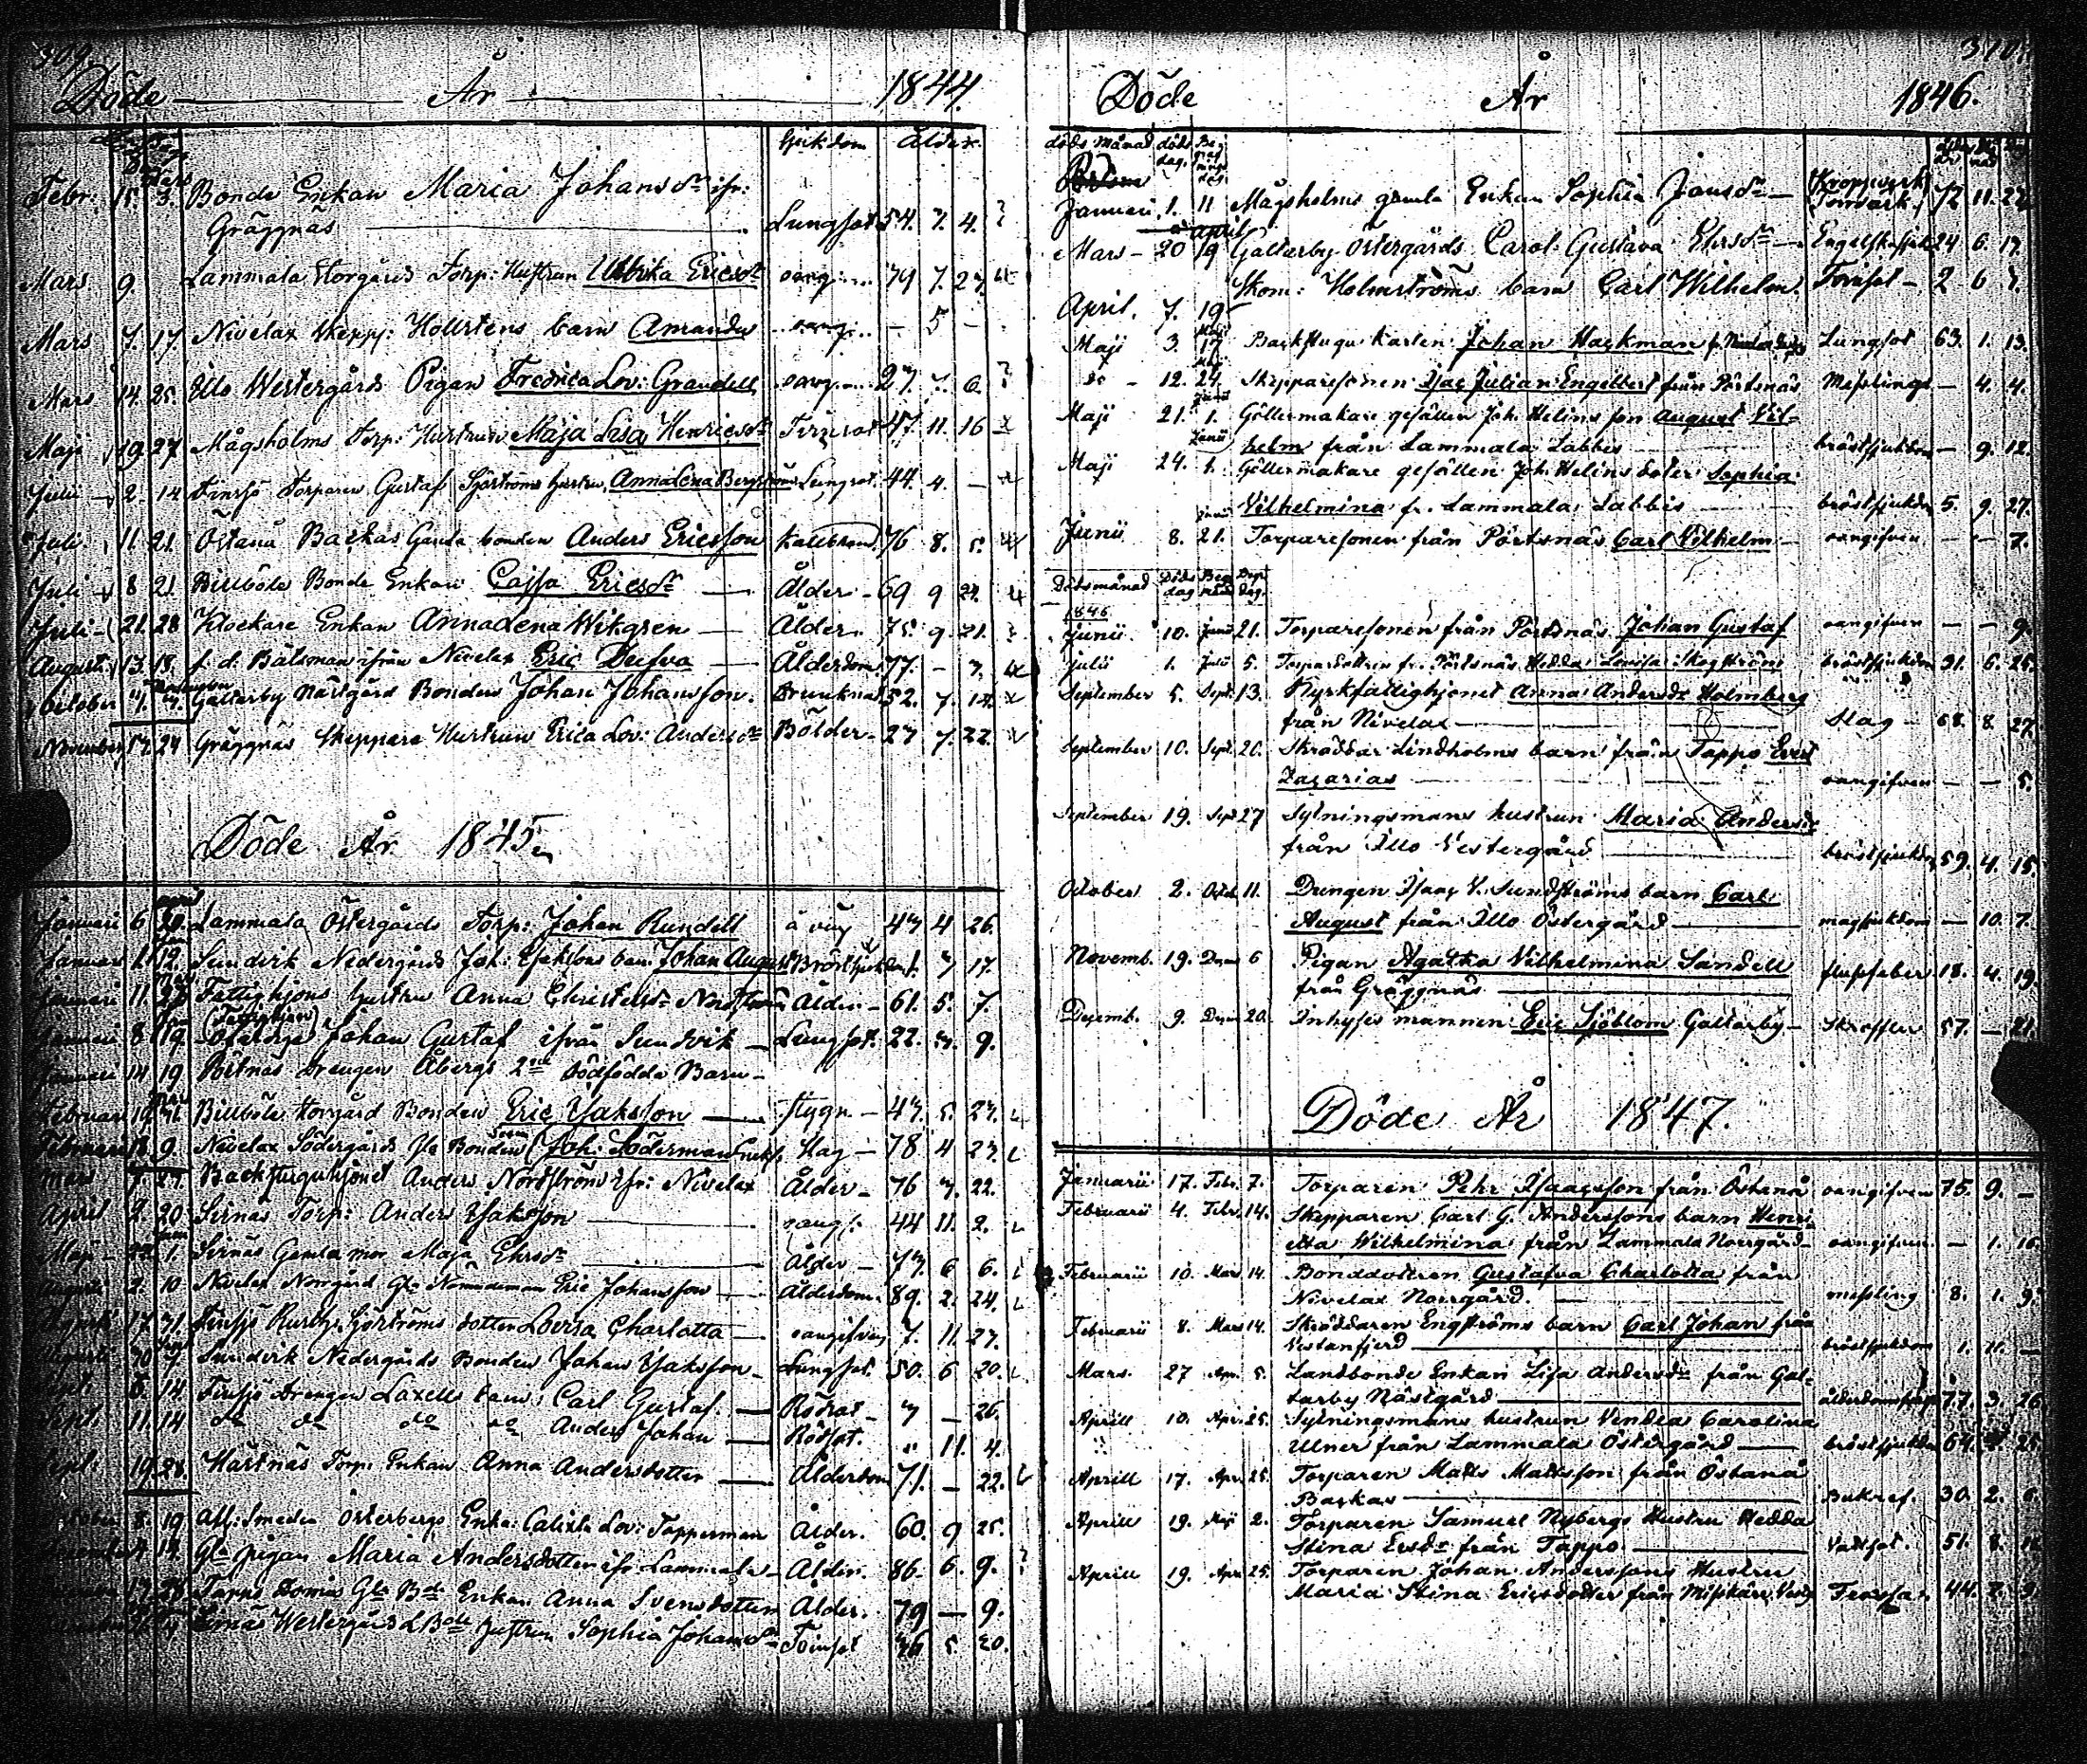 309.
Döde År 1844.
Sjukdom Ålder.
Febr. 15. 3. Bonde Enkan Maria Johansdr ifr:
Gräggnäs Lungsot 54. 7. 4.
Mars 9. Lammala Storgårds Torp: Hustrun Ulrika Ericsdr oang 79 7. 27.
Mars 7. 17. Nivelax Skepp: Hollstens barn Amanda oang - 5 -
Mars 14. 25. Illo Westergårds Pigan Fredrica Lov: Grandell oang 27. 7. 6.
Maji 19. 27. Mågsholms Torp: Hustrun Maja Lisa Henricsdr Tvinsot 47. 11. 16
Julii 2. 14 Finsjö Torparen Gustaf Sjöströms hustru Anna Lena Bergström Lungsot. 44. 4. -
Juli 11. 21. Östanå Backas Gamla bonden Anders Ericsson Kallbrand. 76 8. 5.
Juli 8 21. Billböle Bonde Enkan Cajsa Ericsdr Ålder 69 9 24.
Juli 21. 28 Klockare Enkan Anna Lena Wikgren Ålder. 75. 9. 21.
Augusti 13. 18. f. d. Båtsman ifrån Nivelax Eric Dufva Ålderdom. 77. - 7.
October 1. Galtarby Nästgård Bonden Johan Johansson. Drunknad 52. 7. 14.
November 17. 24 Gräggnäs Skeppare Hustrun Erica Lov: Andersdr Bölder 27 7. 22.
Döde År 1845.
Januari 6 20. Lammala Östergårds Torp: Johan Rundell å väg 47 4 26.
Januari 12. Sundvik Nedergårds Joh: Isakssons barn Johan August Bröstsjukdom 1. 7 17.
Januari 11. Fattighjons hustru Anna Christersdr Nordström Ålder 61. 5. 7.
Januari 8 19. (Fattighjon) Ofärdige Johan Gustaf ifrån Sundvik Lungsot. 22. 9.
Januari 14 19 Pörtnäs Drengen Åbergs 2ne dödfödda Barn
Februari 19. Billböle Storgård Bonden Eric Isaksson Stygn 47. 5. 27.
Februari 18. 9. Nivelax Södergårds Gle Bonden Joh: Söderman Slag 78 4 27.
Mars 7. 27. Backstuguhjonet Anders Nordström ifr: Nivelax Ålder 76 7. 22.
April 2. 20. Sirnäs Torp: Anders Isaksson oang. 44 11. 2.
Maji 22. 1. Sirnäs Gamla mor Maja Ehrsdr Ålder 77. 6 6.
Augusti 2. 10 Nivelax Norrgård Gle Nämndeman Eric Johansson Ålderdom 89. 2. 24.
Augusti 17 31. Finsjö Rusth: Sjöströms dotter Lovisa Charlotta oangifven 7. 11. 27.
Augusti 30 7. Sundvik Nedergårds Bonden Johan Isaksson Lungsot. 50. 6 20.
Sept. 6. 14. Finsjö Drengen Laxells barn: Carl Gustaf. Rödsot 7 - 26.
Sept. 11. 14 do do do do Anders Johan Rödsot. " 11. 4.
Sept. 19. 28. Hartnäs Torp: Enkan Anna Andersdotter Ålderdom 71. - 22.
October 8. 19 Afl: Smeden Österbergs Enka: Calixta Lov: Topperman Ålder. 60. 9 25.
Gla pigan Maria Andersdotter ifr Lammala Ålder. 86. 6. 9.
Tappo Domars Gla Bde Enkan Anna Svensdotter Ålder. 79 - 9.
Sirnäs Westergård LBde hustrun Sophia Johansdr Tvinsot 5 20.
310.
Döde År 1846.
döds Månad döds dag. Begrafnings dag.
Januari 1. 11 Mågsholms gamla Enkan Sophia Jansdr 72 11. 22.
Mars 20 April 19 Galtarby Östergårds Carol: Gustava Ehrsdr Engelska sjuk 24 6. 17.
April. 7. 19 Skom: Holmströms barn Carl Wilhelm. Tvinsot 2 6 7.
Maji 3. Maji 17 Backstugu karlen Johan Hackman Lungsot 63. 1. 13.
do 12. Maji 24. Skepparesonen Isac Julian Engelbert från Pörtsnäs Messling - 4. 4.
Maji 21. Junii 1. Göllermakare gesällen Joh. Helins son August Vil-
helm från Lammala Labbis bröstsjukdom - 9. 12.
Maji 24. Junii 1. Göllermakare gesällen Joh. Helins doter Sophia
Vilhelmina fr. Lammala Labbis bröstsjukdom 5. 9. 27.
Junii 8. 21. Torparesonen från Pörtsnäs Carl Vilhelm oangifven - - 7.
Dödsmånad Döds dag Beg månad Beg dag.
1846
Junii 10. Junii 21. Torparesonen från Pörtsnäs Johan Gustaf oangifven - - 9.
Julii 1. Julii 5. Torpardottren fr. Pörtsnäs Hedda Lovisa Skogström bröstsjukdom 31. 6. 25.
September 5. Sept. 13. Kyrkfattighjonet Anna Andersdr Holmberg
från Nivelax Slag 68. 8. 27
September 10. Sept. 20. Skräddar Lindholms barn från Tappo Evert
Zacarias oangifven - - 5.
September 19. Sept 27 Sytningsmans hustrun Maria Andersdr
från Illo Vestergård bröstsjukdom 59. 4. 15.
October 2. Octob. 11. Drengen Isaac V. Sundströms barn Carl
August från Illo Östergård magsjukdom - 10. 7.
Novemb. 19. Decem 6 Pigan Agatha Vilhelmina Sandell
från Gräggnäs flussfeber 18. 4. 19.
Decemb. 9. Decem 20. Inhyses mannen Eric Sjöblom Galtarby Skroffler 57. - 21.
Döde År 1847.
Januarii 17. Febr. 7. Torparen Pehr Isacsson från Östanå oangifven 75. 9. -
Februarii 4. Febr. 14. Skepparen Carl G. Anderssons barn Henri-
etta Wilhelmina från Lammala Norrgård oangifven. - 1. 16.
Februarii 10. Mars 14. Bonddottren Gustafva Charlotta från
Nivelax Norrgård. messling 8. 1. 9.
Februarii 8. Mars 14. Skräddaren Engströms barn Carl Johan från
Vestanfjerd bröstsjukdom 1. 11. -
Mars. 27 Apr. 5. Landbonde Enkan Lisa Andersdr från Gal-
tarby Nästgård 77. 3. 26.
Aprill 10. Apr. 25. Sytningsmans hustrun Vendla Carolina
Ulner från Lammala Östergård bröstsjukdom 64. 25.
Aprill 17. Apr. 25. Torparen Matts Mattsson från Östanå
Backas Bukref. 30. 2. 6.
Aprill 19. Maji 2. Torparen Samuel Nybergs Hustru Hedda
Stina Ersdr från Tappo Vattsot. 51. 8.
Aprill 19. Apr. 25. Torparen Johan Anderssons Hustru
Maria Stina Ericsdotter från Misskärr 44. 7. 9.